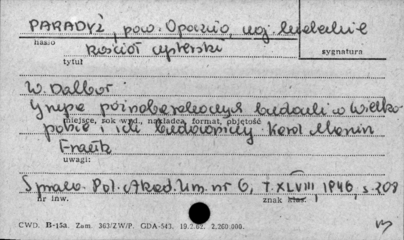 PARADYŻ, pow. Opoczno, woj. kieleckie
hasło
kościół cysterski
sygnatura
tytuł
W. Dalbor
Grupa późnobarokowych budowli w Wielko-
miejsce, rok wyd., nakładca, format, objętość
polsce i ich budowniczy Karol Marcin
Frantz
uwagi:
Spraw. Pol. Akad. Um. nr 6, T. XLVIII, 1946, s. 308
nr inw.
znak klas.
CWD. B-15a. Zam. 363/ZW/P. GDA-543. 19.2.62. 2.200.000.